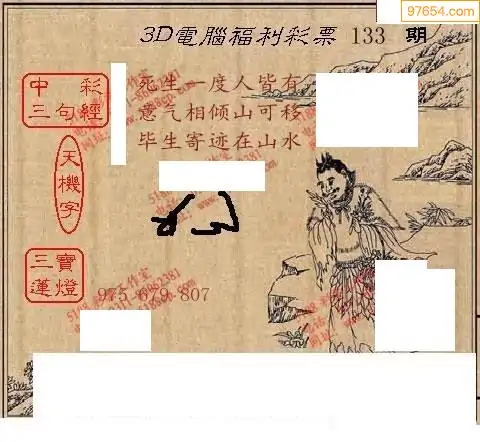 97654.com
3D電腦福利彩票 133 期
中彩
三句經
死生一度人皆有
意气相倾山可移
毕生寄迹在山水
天機字
三寶
蓮燈
975 679 807